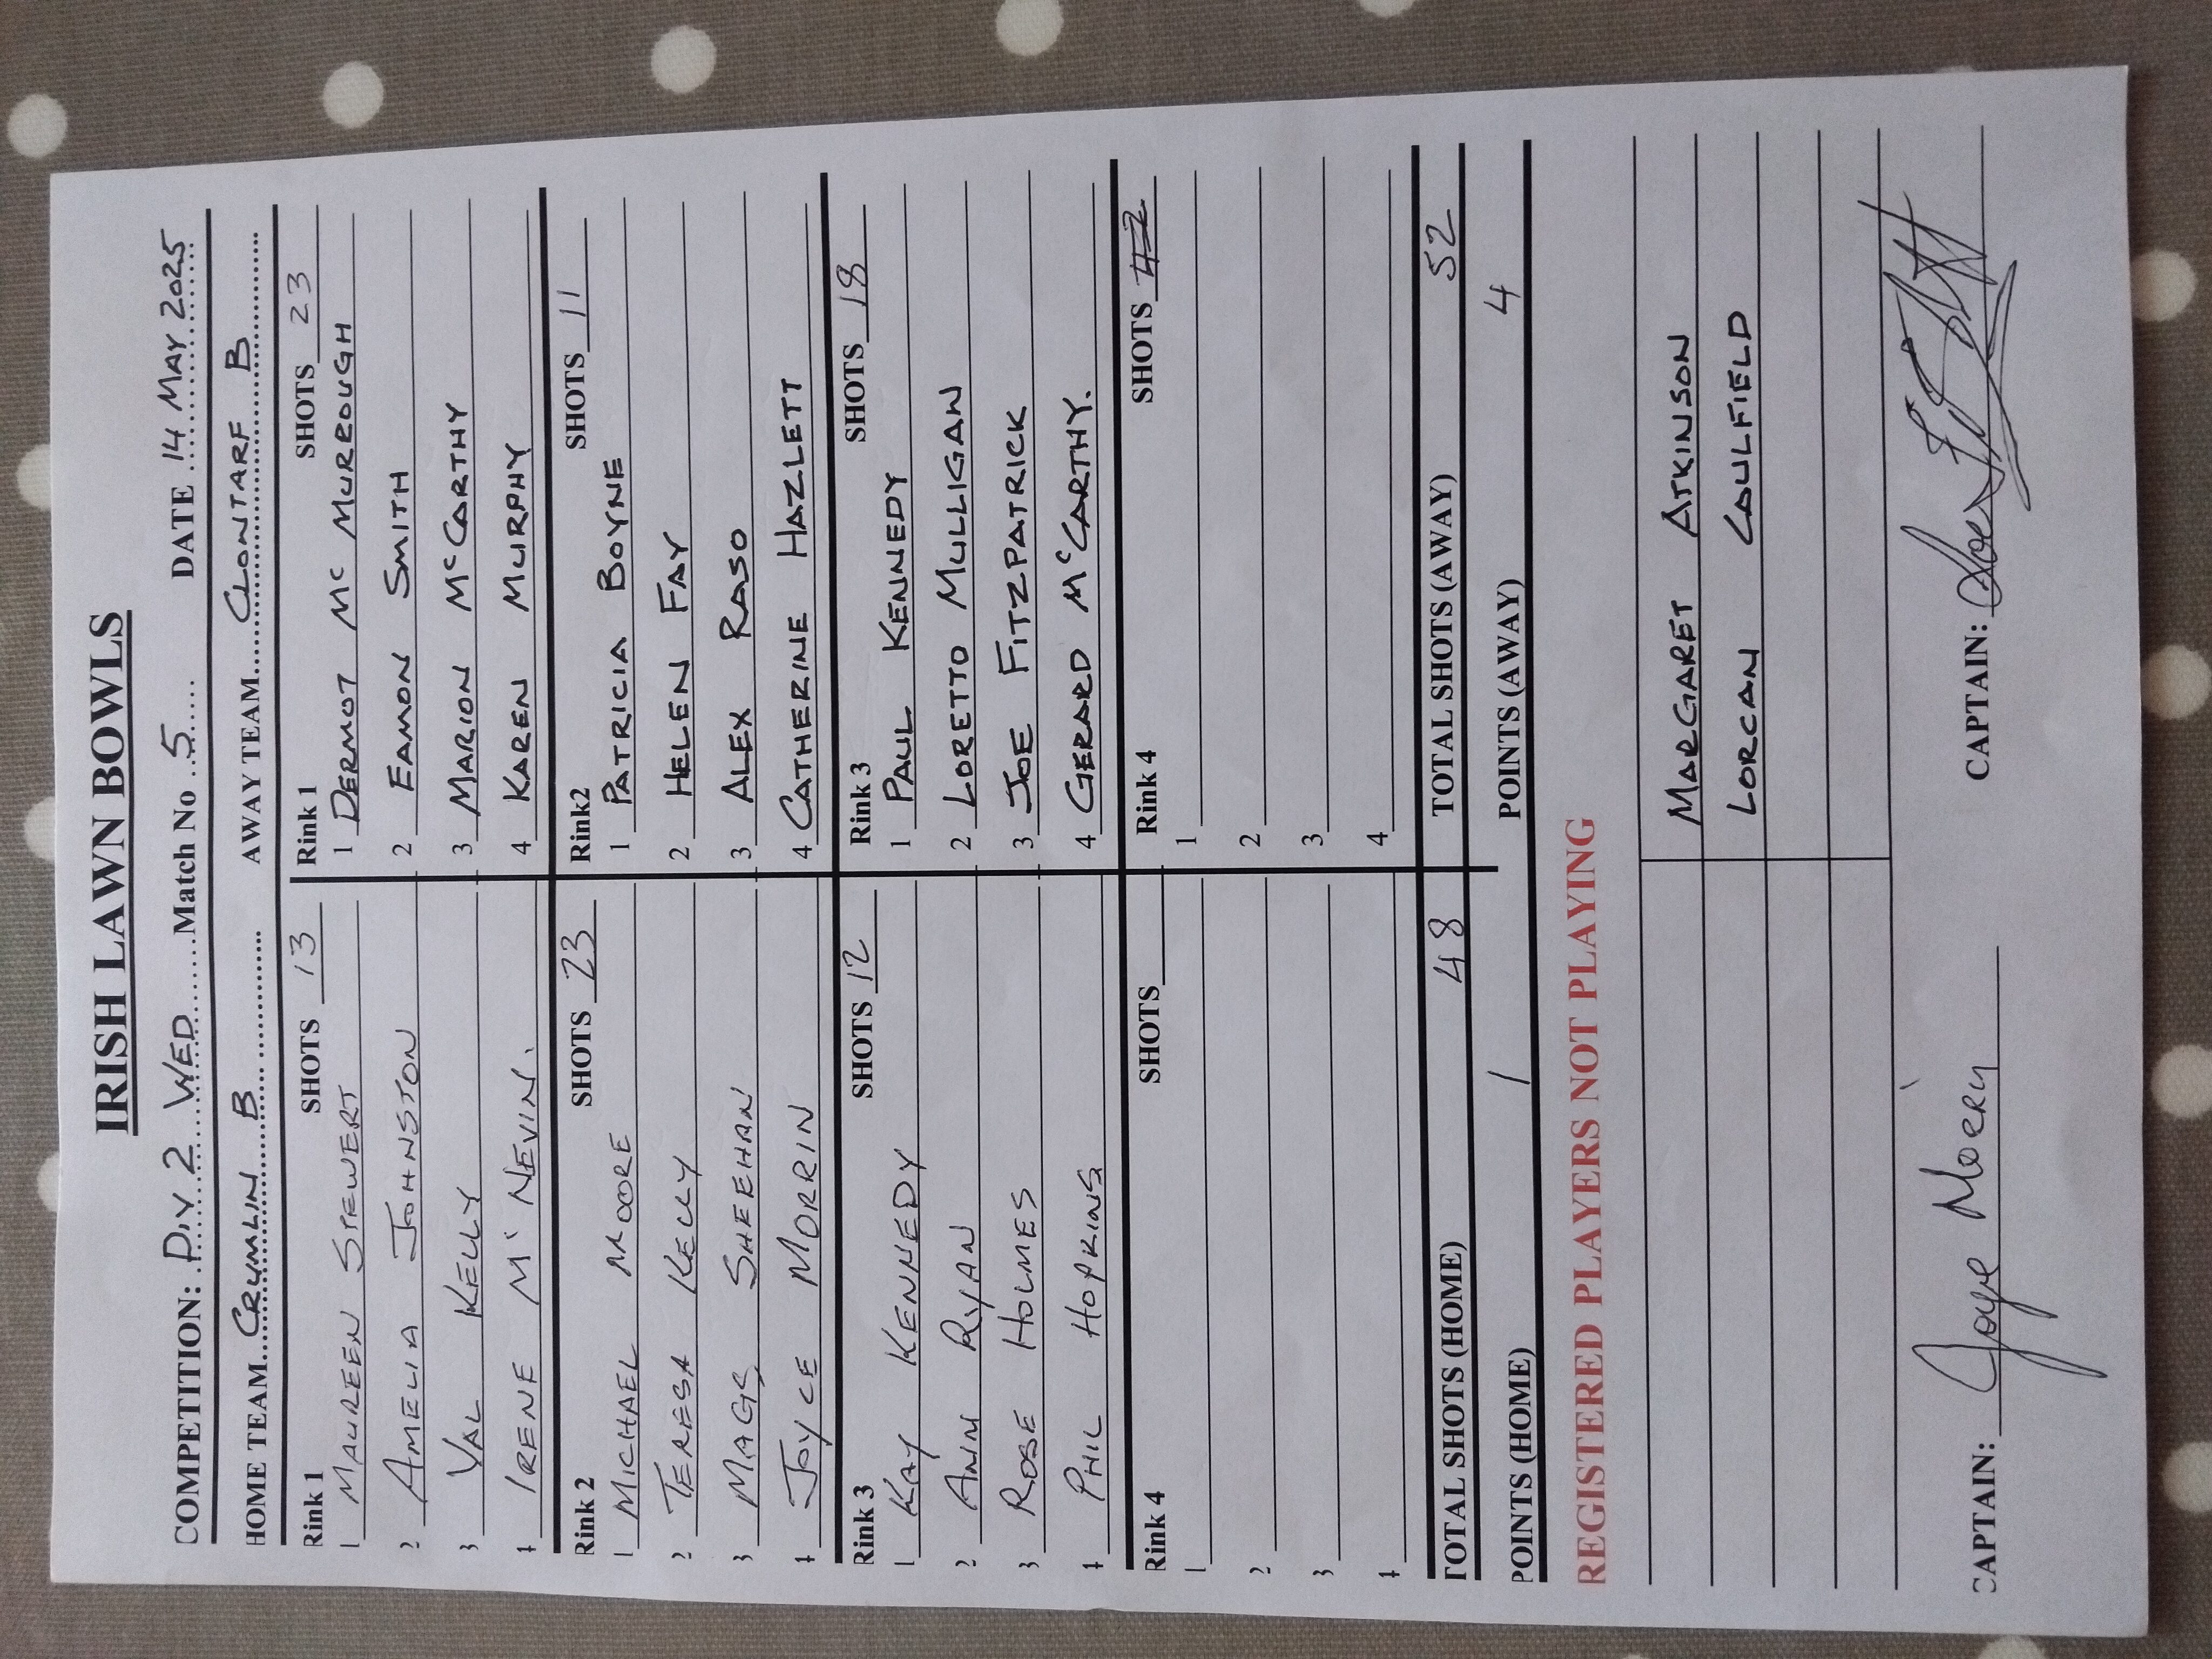 IRISH LAWN BOWLS
COMPETITION: DIV 2 WED Match No 5 DATE 14 MAY 2025
HOME TEAM CRUMLIN B AWAY TEAM CLONTARF B
Rink 1 SHOTS 13
1 MAUREEN STEWERT
2 AMELIA JOHNSTON
3 VAL KELLY
4 IRENE Mc NEVIN.
Rink 2 SHOTS 23
1 MICHAEL MOORE
2 TERESA KELLY
3 MAGS SHEEHAN
4 JOYCE MORRIN
Rink 3 SHOTS 12
1 KAY KENNEDY
2 ANN RYAN
3 ROSE HOLMES
4 PHIL HOPKINS
Rink 4 SHOTS
1
2
3
4
TOTAL SHOTS (HOME) 48
POINTS (HOME) 1
Rink 1 SHOTS 23
1 DERMOT Mc MURROUGH
2 EAMON SMITH
3 MARION McCARTHY
4 KAREN MURPHY
Rink2 SHOTS 11
1 PATRICIA BOYNE
2 HELEN FAY
3 ALEX RASO
4 CATHERINE HAZLETT
Rink 3 SHOTS 18
1 PAUL KENNEDY
2 LORETTO MULLIGAN
3 JOE FITZPATRICK
4 GERARD McCARTHY.
Rink 4 SHOTS
1
2
3
4
TOTAL SHOTS (AWAY) 52
POINTS (AWAY) 4
REGISTERED PLAYERS NOT PLAYING
MARGARET ATKINSON
LORCAN CAULFIELD
CAPTAIN: Joyce Morrin CAPTAIN: